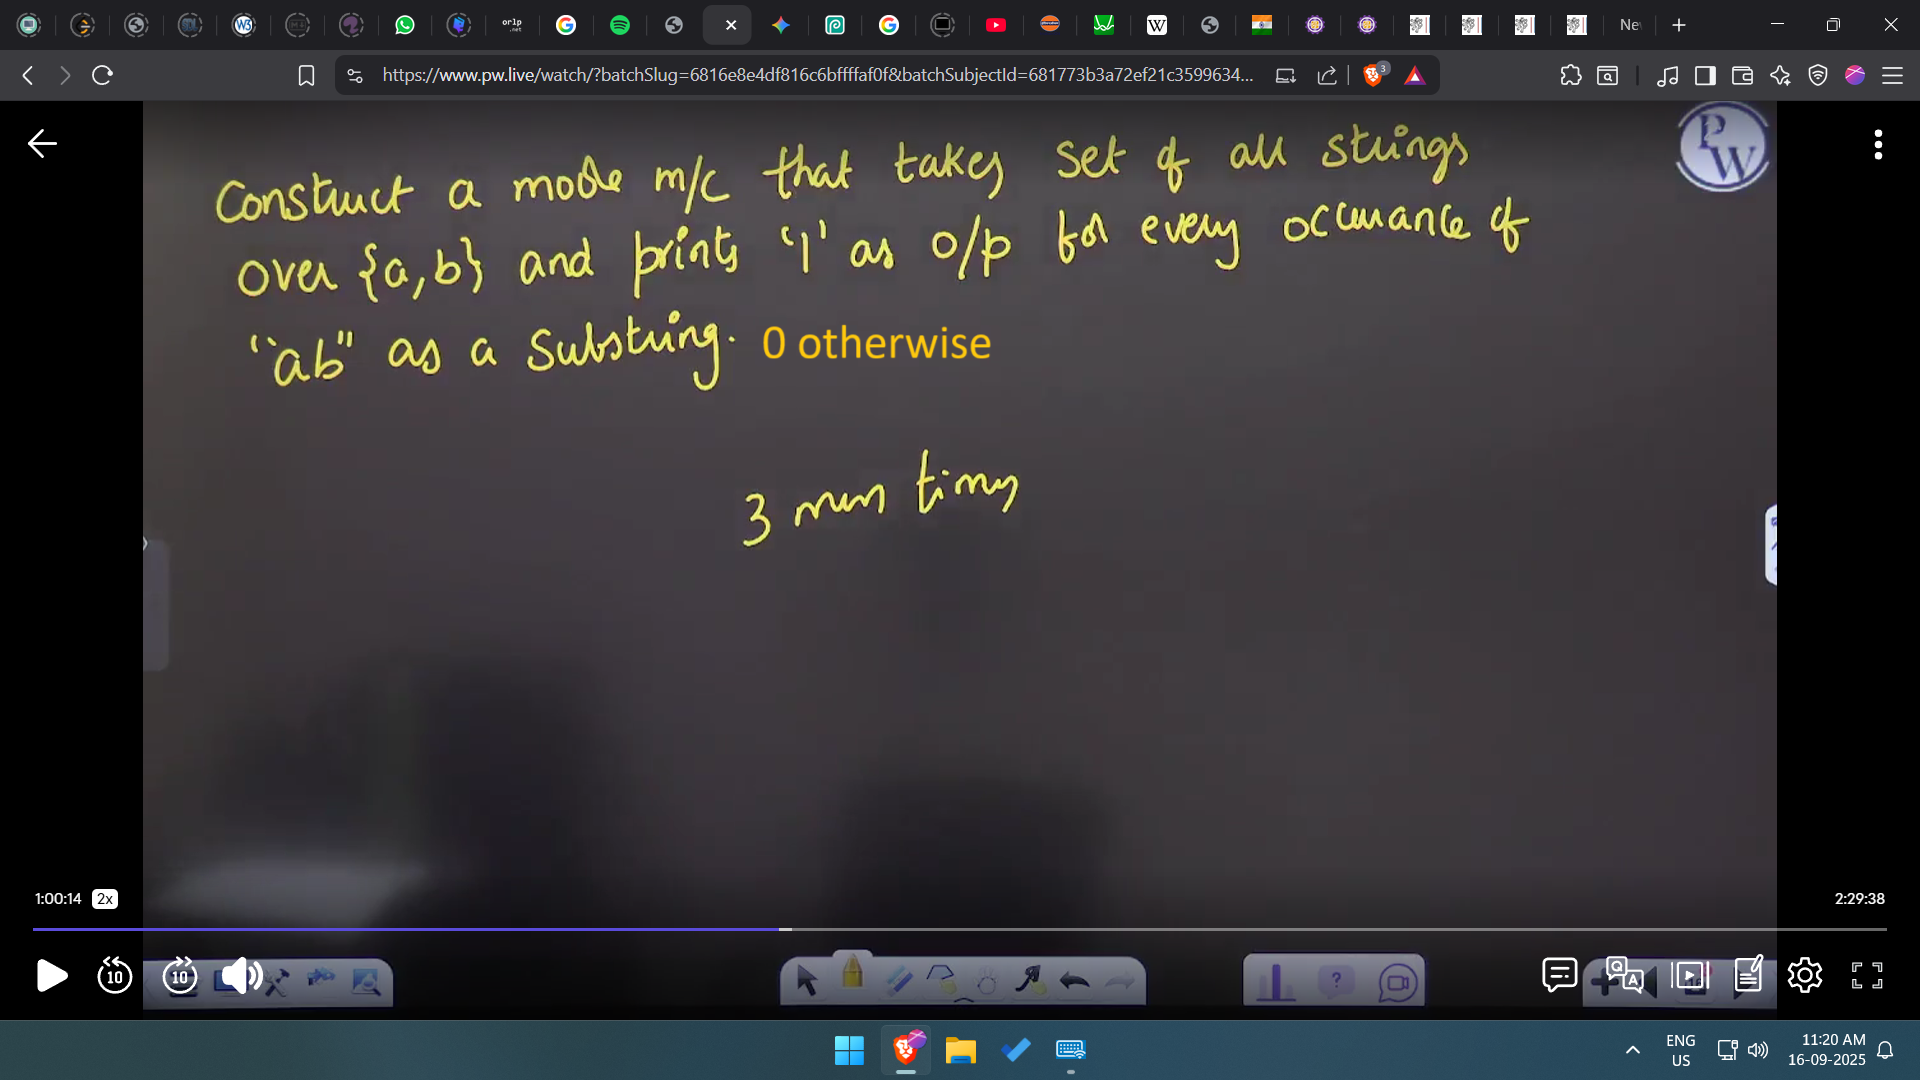 W3
orlp
.net
W
Ne
https://www.pw.live/watch/?batchSlug=6816e8e4df816c6bffffaf0f&batchSubjectId=681773b3a72ef21c3599634...
3
PW
Construct a moore m/c that takes set of all strings
over {a,b} and prints '1' as o/p for every occurance of
"ab" as a substring. 0 otherwise
3 min timy
1:00:14 2x
2:29:38
10 10
Q A
ENG
US
11:20 AM
16-09-2025